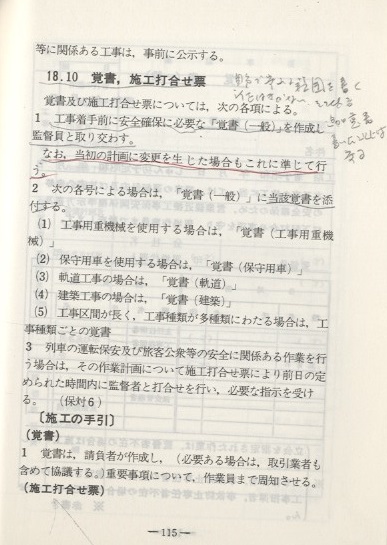 等に関係ある工事は，事前に公示する。
18.10　覚書，施工打合せ票
覚書及び施工打合せ票については，次の各項による。
1　工事着手前に安全確保に必要な「覚書（一般）」を作成し
監督員と取り交わす。
なお，当初の計画に変更を生じた場合もこれに準じて行
う。
2　次の各号による場合は，「覚書（一般）」に当該覚書を添
付する。
(1)　工事用重機械を使用する場合は，「覚書（工事用重機
械）」
(2)　保守用車を使用する場合は，「覚書（保守用車）」
(3)　軌道工事の場合は，「覚書（軌道）」
(4)　建築工事の場合は，「覚書（建築）」
(5)　工事区間が長く，工事種類が多種類にわたる場合は，工
事種類ごとの覚書
3　列車の運転保安及び旅客公衆等の安全に関係ある作業を行
う場合は，その作業計画について施工打合せ票により前日の定
められた時間内に監督者と打合せを行い，必要な指示を受け
る。　（保対6）
〔施工の手引〕
（覚書）
1　覚書は，請負者が作成し，（必要ある場合は，取引業者も
含めて協議する。）重要事項について，作業員まで周知させる。
（施工打合せ票）
―115―